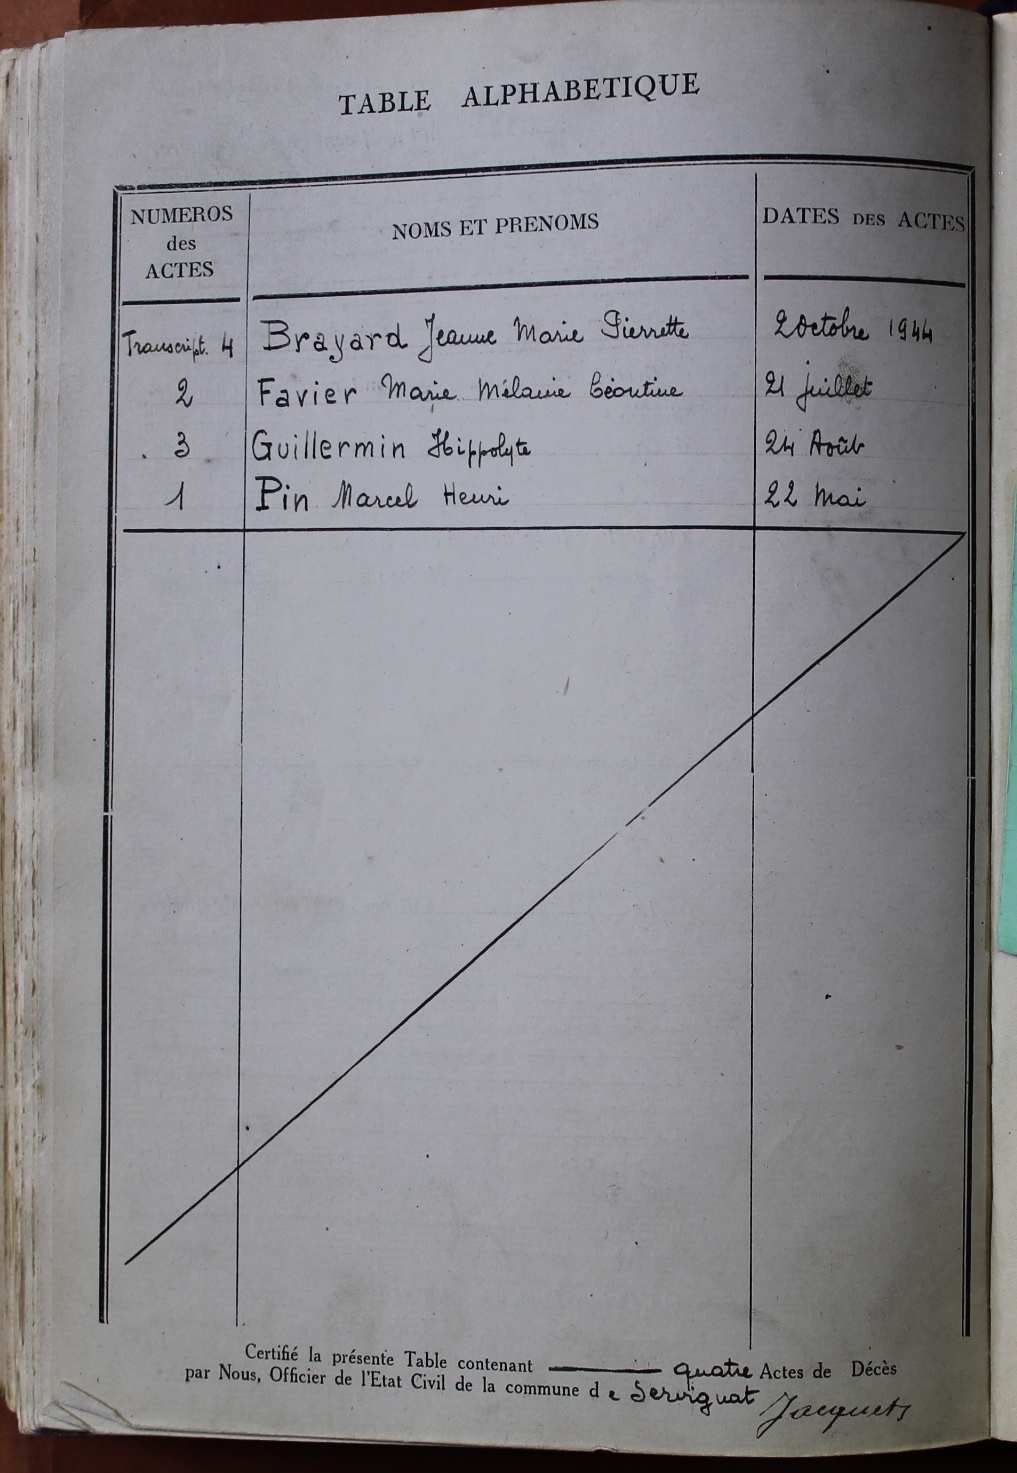 TABLE ALPHABETIQUE
NUMEROS
des
ACTES
NOMS ET PRENOMS
DATES DES ACTES
Transcript. 4 Brayard Jeanne Marie Pierrette 2 Octobre 1944
2 Favier Marie Mélanie Léontine 21 juillet
3 Guillermin Hippolyte 24 Août
1 Pin Marcel Henri 22 Mai
Certifié la présente Table contenant quatre Actes de Décès
par Nous, Officier de l'Etat Civil de la commune de Servignat